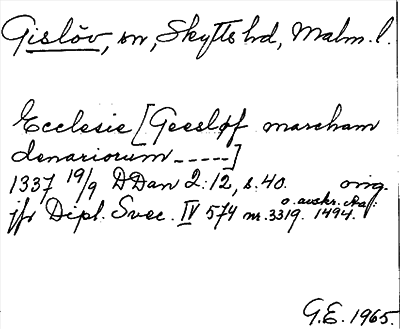 Gislöv, sn, Skytts hd, Malm. l.
Ecclesie [Geesløf marcham
denariorum -----]
1337 19/9 DDan 2:12, s. 40. orig.
jfr Dipl. Svec. IV 574 nr. 3319. o. avskr. 1494.
G.E. 1965.